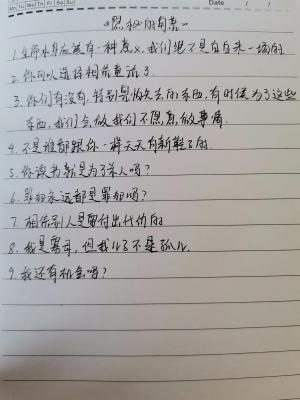 Mo Tu We Th Fr Sa Su
Date / /
《隐秘的角落》
1.生命本身应该有一种意义,我们绝不是白白来一场的
2.你可以选择相信童话.
3.你们有没有,特别害怕失去的东西,有时候为了这些
东西,我们会做我们不愿意做的事情.
4.不是谁都跟你一样天天有新鞋子的.
5.你读书就是为了杀人吗?
6.罪犯永远都是罪犯吗?
7.相信别人是要付出代价的
8.我是寡母,但我儿子不是孤儿.
9.我还有机会吗?